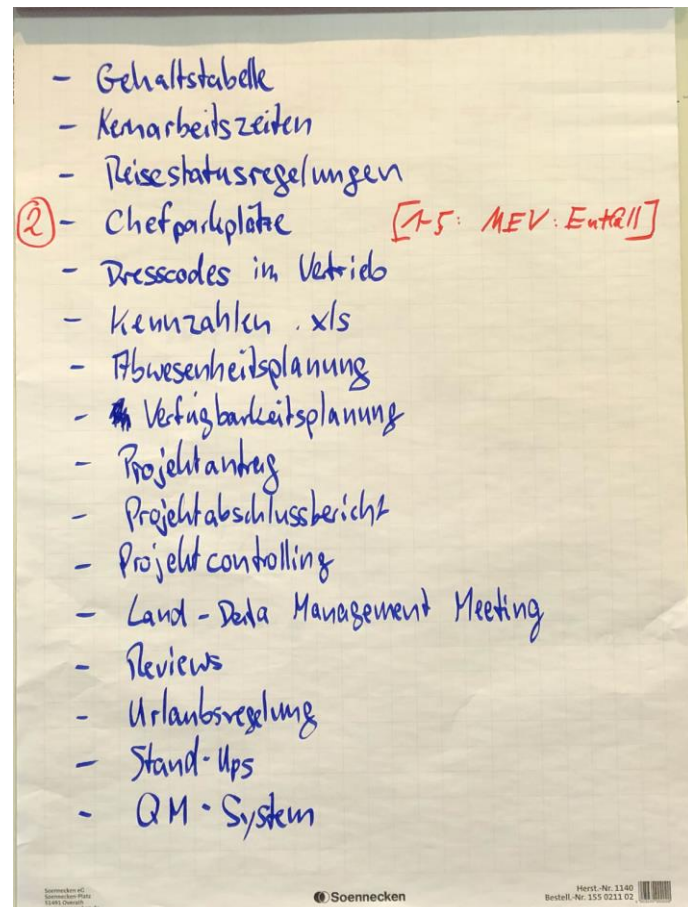 - Gehaltstabelle
- Kernarbeitszeiten
- Reisestatusregelungen
② - Chefparkplätze [1-5: MEV: Entfall]
- Dresscodes im Vertrieb
- Kennzahlen .xls
- Abwesenheitsplanung
- Verfügbarkeitsplanung
- Projektantrag
- Projektabschlussbericht
- Projektcontrolling
- Land-Data Management Meeting
- Reviews
- Urlaubsregelung
- Stand-Ups
- QM-System
Soennecken eG
Soennecken-Platz
51491 Overath
Soennecken
Herst.-Nr. 1140
Bestell.-Nr. 155 0211 02